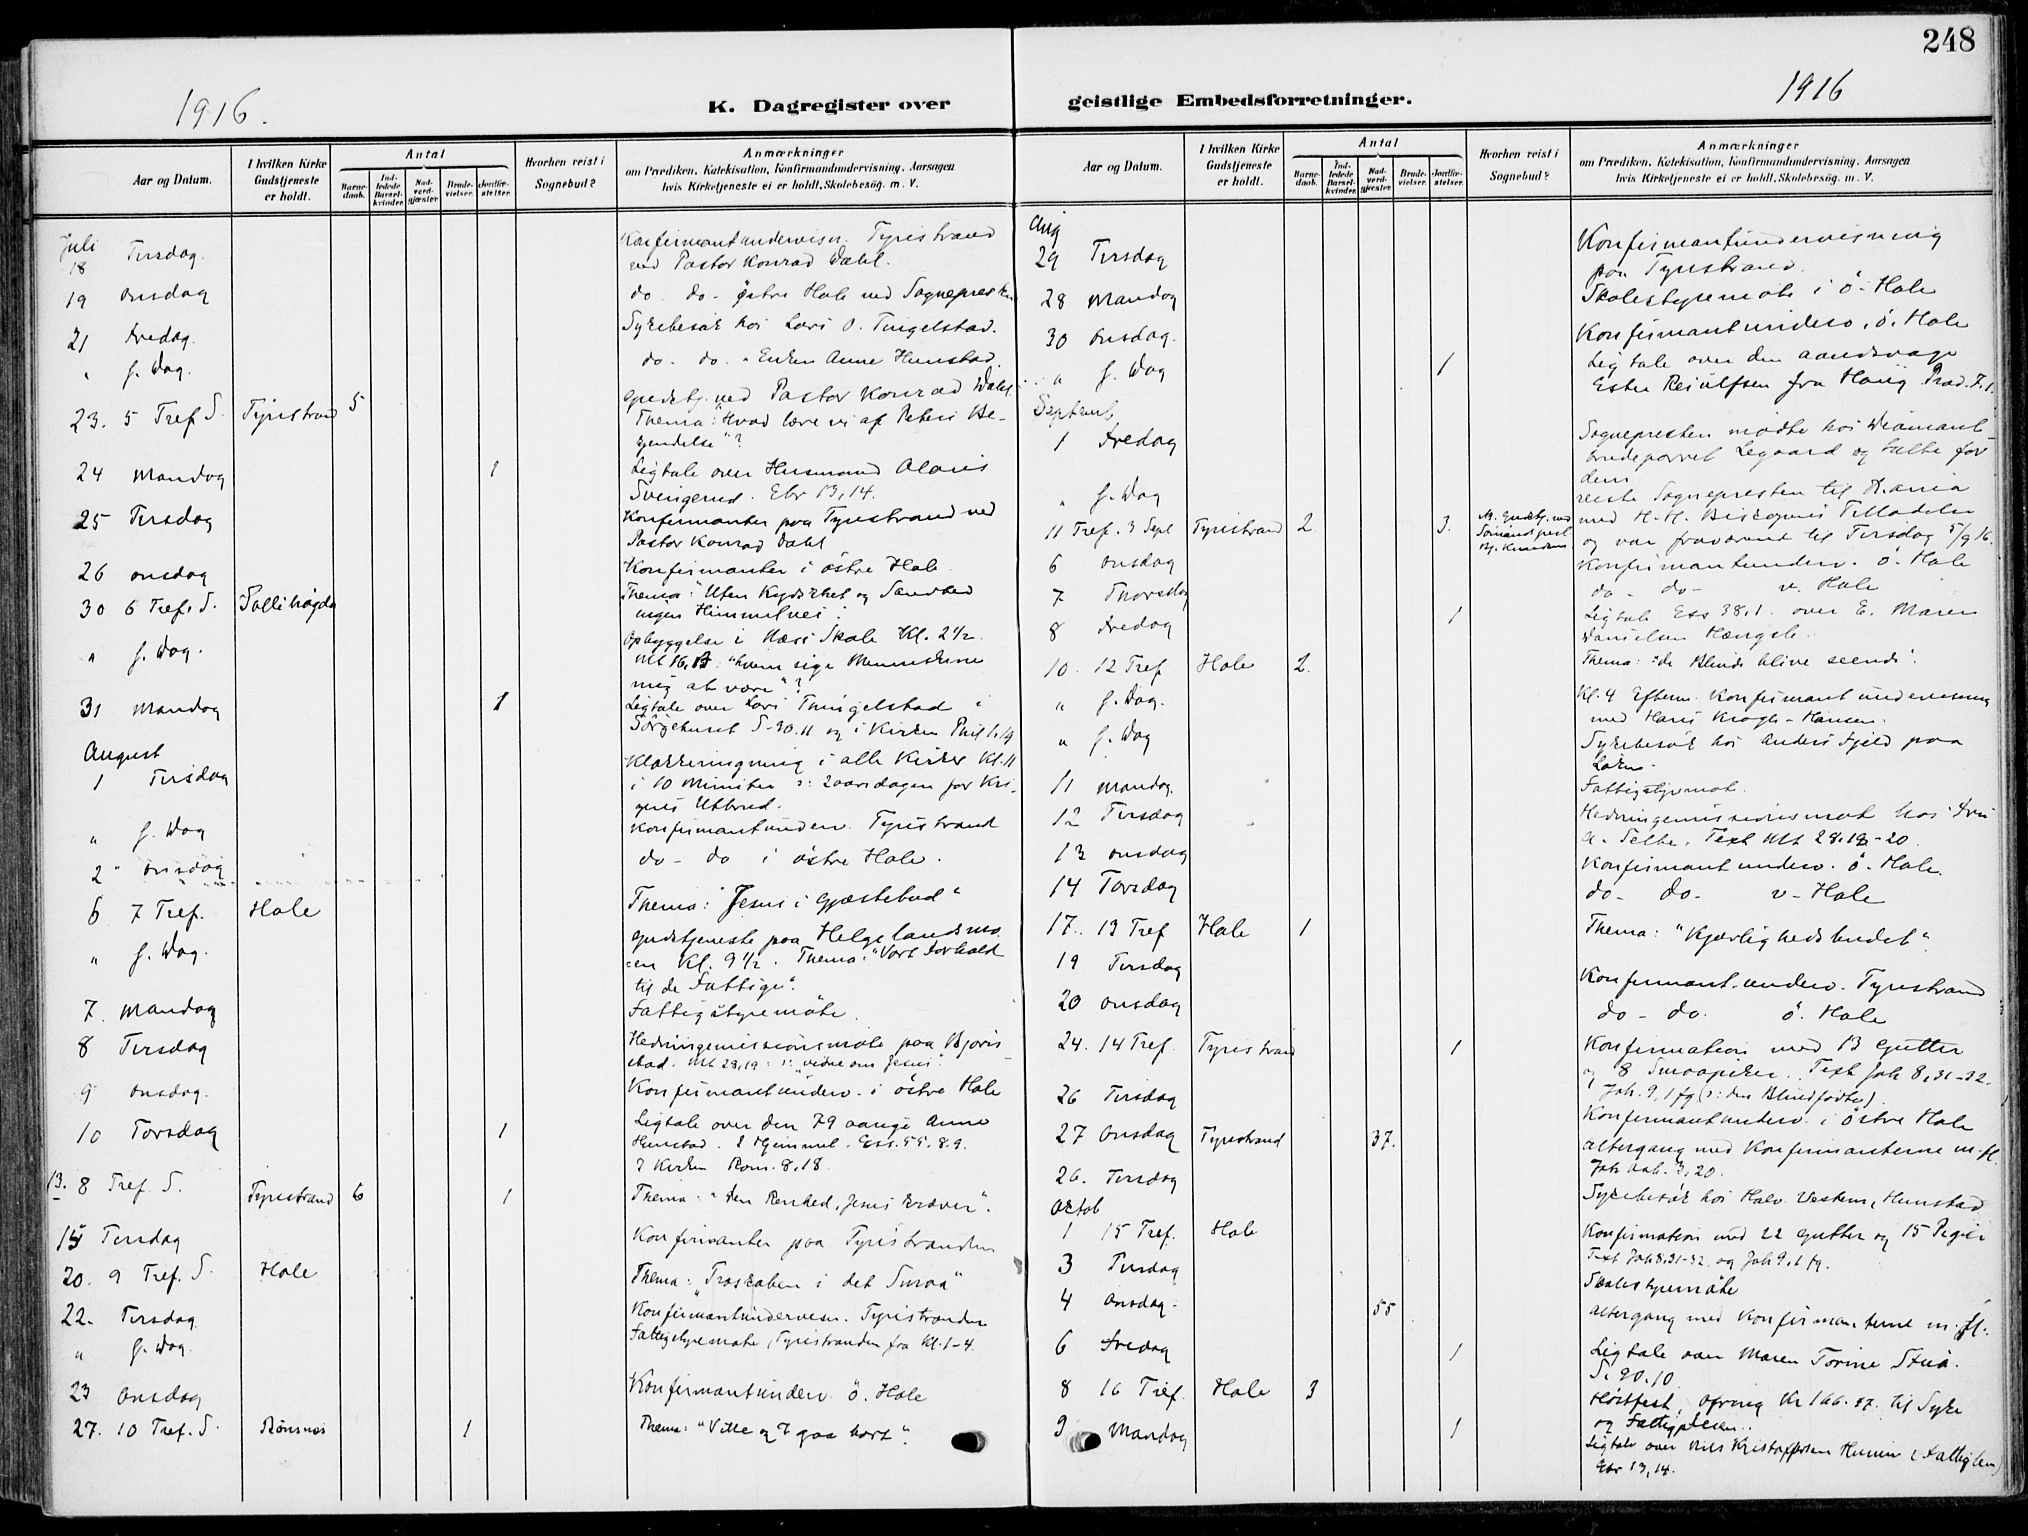 248
1916.
K. Dagregister over
geistlige Embedsforretninger.
1916
Aar og Datum.
I hvilken Kirke Gudstjeneste er holdt.
Antal
Barne-daab.
Ind-ledede Barsel-kvinder.
Nad-verd-gjæster.
Brude-vielser.
Jordfæ-stelser.
Hvorhen reist i Sognebud?
Anmærkninger
om Prædiken, Katekisation, Konfirmandundervisning, Aarsagen
hvis Kirketjeneste ei er holdt, Skolebesøg. m. V.
Juli
18 Tirsdag. Konfirmantundervisn. Tyristrand
ved Pastor Konrad Dahl.
19 Onsdag do. do- østre Hole ved Sognepresten
21 Fredag. Sykebesøk hos Lars O. Tingelstad.
" s. Dag. do- do- " Enken Anne Hunstad.
23. 5 Tref S. Tyristrand 5 Gudstj. ved Pastor Konrad Dahl.
Thema: "Hvad lære vi af Peters Be-
kjendelse"?
24 Mandag 1 Ligtale over Husmand Olaus
Svingerud. Ebr 13,14.
25 Tirsdag Konfirmanter paa Tyristrand ved
Pastor Konrad Dahl
26 Onsdag Konfirmanter i østre Hole
30 6 Tref. S. Sollihøgda Thema: "Uten Kydskhet og Sandhed
ingen Himmelvei".
" s. Dag. Opbyggelse i Næs Skole Kl. 2 1/2.
Mt 16,13 "hvem sige Menneskene
mig at være"?
31 Mandag 1 Ligtale over Lars Tingelstad i
Sørgehuset S. 90.11 og i Kirken Phil 1.19
August
1 Tirsdag Klokkeringning i alle Kirker Kl. 11
i 10 Minuter : 2aarsdagen for Kri-
gens Utbrud.
" s. Dag Konfirmantunderv. Tyristrand
2 Onsdag do- do i østre Hole.
6 7 Tref. Hole Thema: "Jesus i Gjæstebud"
" s. Dag. Gudstjeneste paa Helgelandsmo-
en Kl. 9 1/2. Thema: "Vort Forhold
til de Fattige".
7. Mandag Fattigstyremøte.
8 Tirsdag Hedningemissionsmøte paa Bjørn-
stad. Mt 28,19: "vidne om Jesus".
9 Onsdag. Konfirmantunderv. i østre Hole
10 Torsdag 1 Ligtale over den 79 aarige Anne
Hunstad. I Hjemmet. Ess. 55. 8.9.
I Kirken Rom. 8,18.
13. 8 Tref. S. Tyristrand 6 1 Thema: "Den Renhed, Jesus kræver".
15 Tirsdag Konfirmanter paa Tyristranden
20. 9 Tref. S. Hole Thema: "Troskaben i det Smaa"
22. Tirsdag Konfirmantundervisn. Tyristranden
" s. Dag. Fattigstyremøte, Tyristranden fra Kl. 1-4.
23 Onsdag Konfirmantunderv. ö. Hole
27. 10 Tref. S. Bönsnes 1 Thema: "Ville og I gaa bort".
Aar og Datum.
I hvilken Kirke Gudstjeneste er holdt.
Antal
Barne-daab.
Ind-ledede Barsel-kvinder.
Nad-verd-gjæster.
Brude-vielser.
Jordfæ-stelser.
Hvorhen reist i Sognebud?
Anmærkninger
om Prædiken, Katekisation, Konfirmandundervisning, Aarsagen
hvis Kirketjeneste ei er holdt, Skolebesøg. m. V.
Aug
29 Tirsdag Konfirmantundervisning
paa Tyristrand.
28 Mandag Skolestyremøte i ö. Hole
30 Onsdag. Konfirmantunderv. ö. Hole
" s. Dag 1 Ligtale over den aandsvage
Ester Reiulfsen fra Haug Præd. 7.1.
Septemb
1 Fredag Sognepresten mødte hos Diamant-
brudeparret Legaard og talte for
dem
" s. Dag reiste Sognepresten til Kr.ania
med H. H. Biskopens Tilladelse
og var fraværende til Tirsdag 5/9 16.
11 Tref. 3 Sept Tyristrand 2 3. Gudstj. ved
6 Onsdag Konfirmantunderv. ö. Hole
7 Thorsdag do- do- v. Hole
8 Fredag 1 Ligtale Ess 38,1. over E. Maren
Danielsen Hængsle.
10. 12 Tref Hole 2. Thema: "de Blinde blive seende".
" s. Dag. Kl. 4 Efterm. Konfirmantundervisning
med Hans Krogh-Hansen.
" s. Dag Sykebesøk hos Anders Fjeld paa
11 Mandag. Fattigstyremøt.
12 Tirsdag Hedningemissionsmøt hos Fru
A. Selte. Text Mt 28.18-20.
13 Onsdag Konfirmantunderv. ö. Hole.
14 Torsdag do- do- v-Hole
17. 13 Tref Hole 1 Thema: "Kjærlighedsbudet".
19 Tirsdag Konfirmant.underv. Tyristrand
20 Onsdag do- do. ö. Hole
24. 14 Tref. Tyristrand 1 Konfirmation med 13 Gutter
og 8 Smaapiker. Text Joh 8,31-32.
Joh. 9,1 fg (: den Blindfödte).
26 Tirsdag Konfirmantunderv. i östre Hole
27 Onsdag Tyristrand 37. Altergang med Konfirmanterne m. fl.
Joh Aab. 3,20.
26. Tirsdag Sykebesøk hos Halv. Vestern, Hunstad
Octob
1 15 Tref. Hole Konfirmation med 22 Gutter og 15 Piger
Text Joh 8,31-32 og Joh 9,1 fg.
3 Tirsdag Skolestyremöte
4 Onsdag. 55 Altergang med Konfirmanterne m. fl.
6 Fredag 1 Ligtale over Maren Torine
S. 90.10
8 16 Tref. Hole 3 Høstfest, ofring Kr 166.87. til Syke
og Fattigpleien.
9 Mandag 1 Ligtale over Nils Kristoffersen (Fattiglem)
Ebr 13,14.